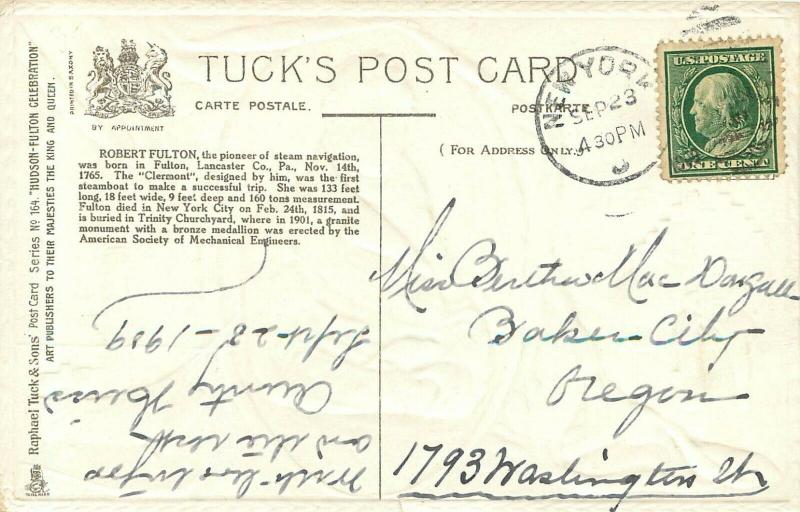 TUCK'S POST CARD
CARTE POSTALE.
POSTKARTE.
(FOR ADDRESS ONLY.)
BY APPOINTMENT
PRINTED IN SAXONY
ROBERT FULTON, the pioneer of steam navigation,
was born in Fulton, Lancaster Co., Pa., Nov. 14th,
1765. The "Clermont", designed by him, was the first
steamboat to make a successful trip. She was 133 feet
long, 18 feet wide, 9 feet deep and 160 tons measurement.
Fulton died in New York City on Feb. 24th, 1815, and
is buried in Trinity Churchyard, where in 1901, a granite
monument with a bronze medallion was erected by the
American Society of Mechanical Engineers.
Raphael Tuck & Sons' Post Card Series Nº 164. "HUDSON-FULTON CELEBRATION"
ART PUBLISHERS TO THEIR MAJESTIES THE KING AND QUEEN.
NEW YORK
SEP 23
4 30 PM
U.S. POSTAGE
ONE CENT
Miss Bertha Mac Dougall
Baker City
Oregon
1793 Washington St
With love
and
Aunty
Sept-23-1909